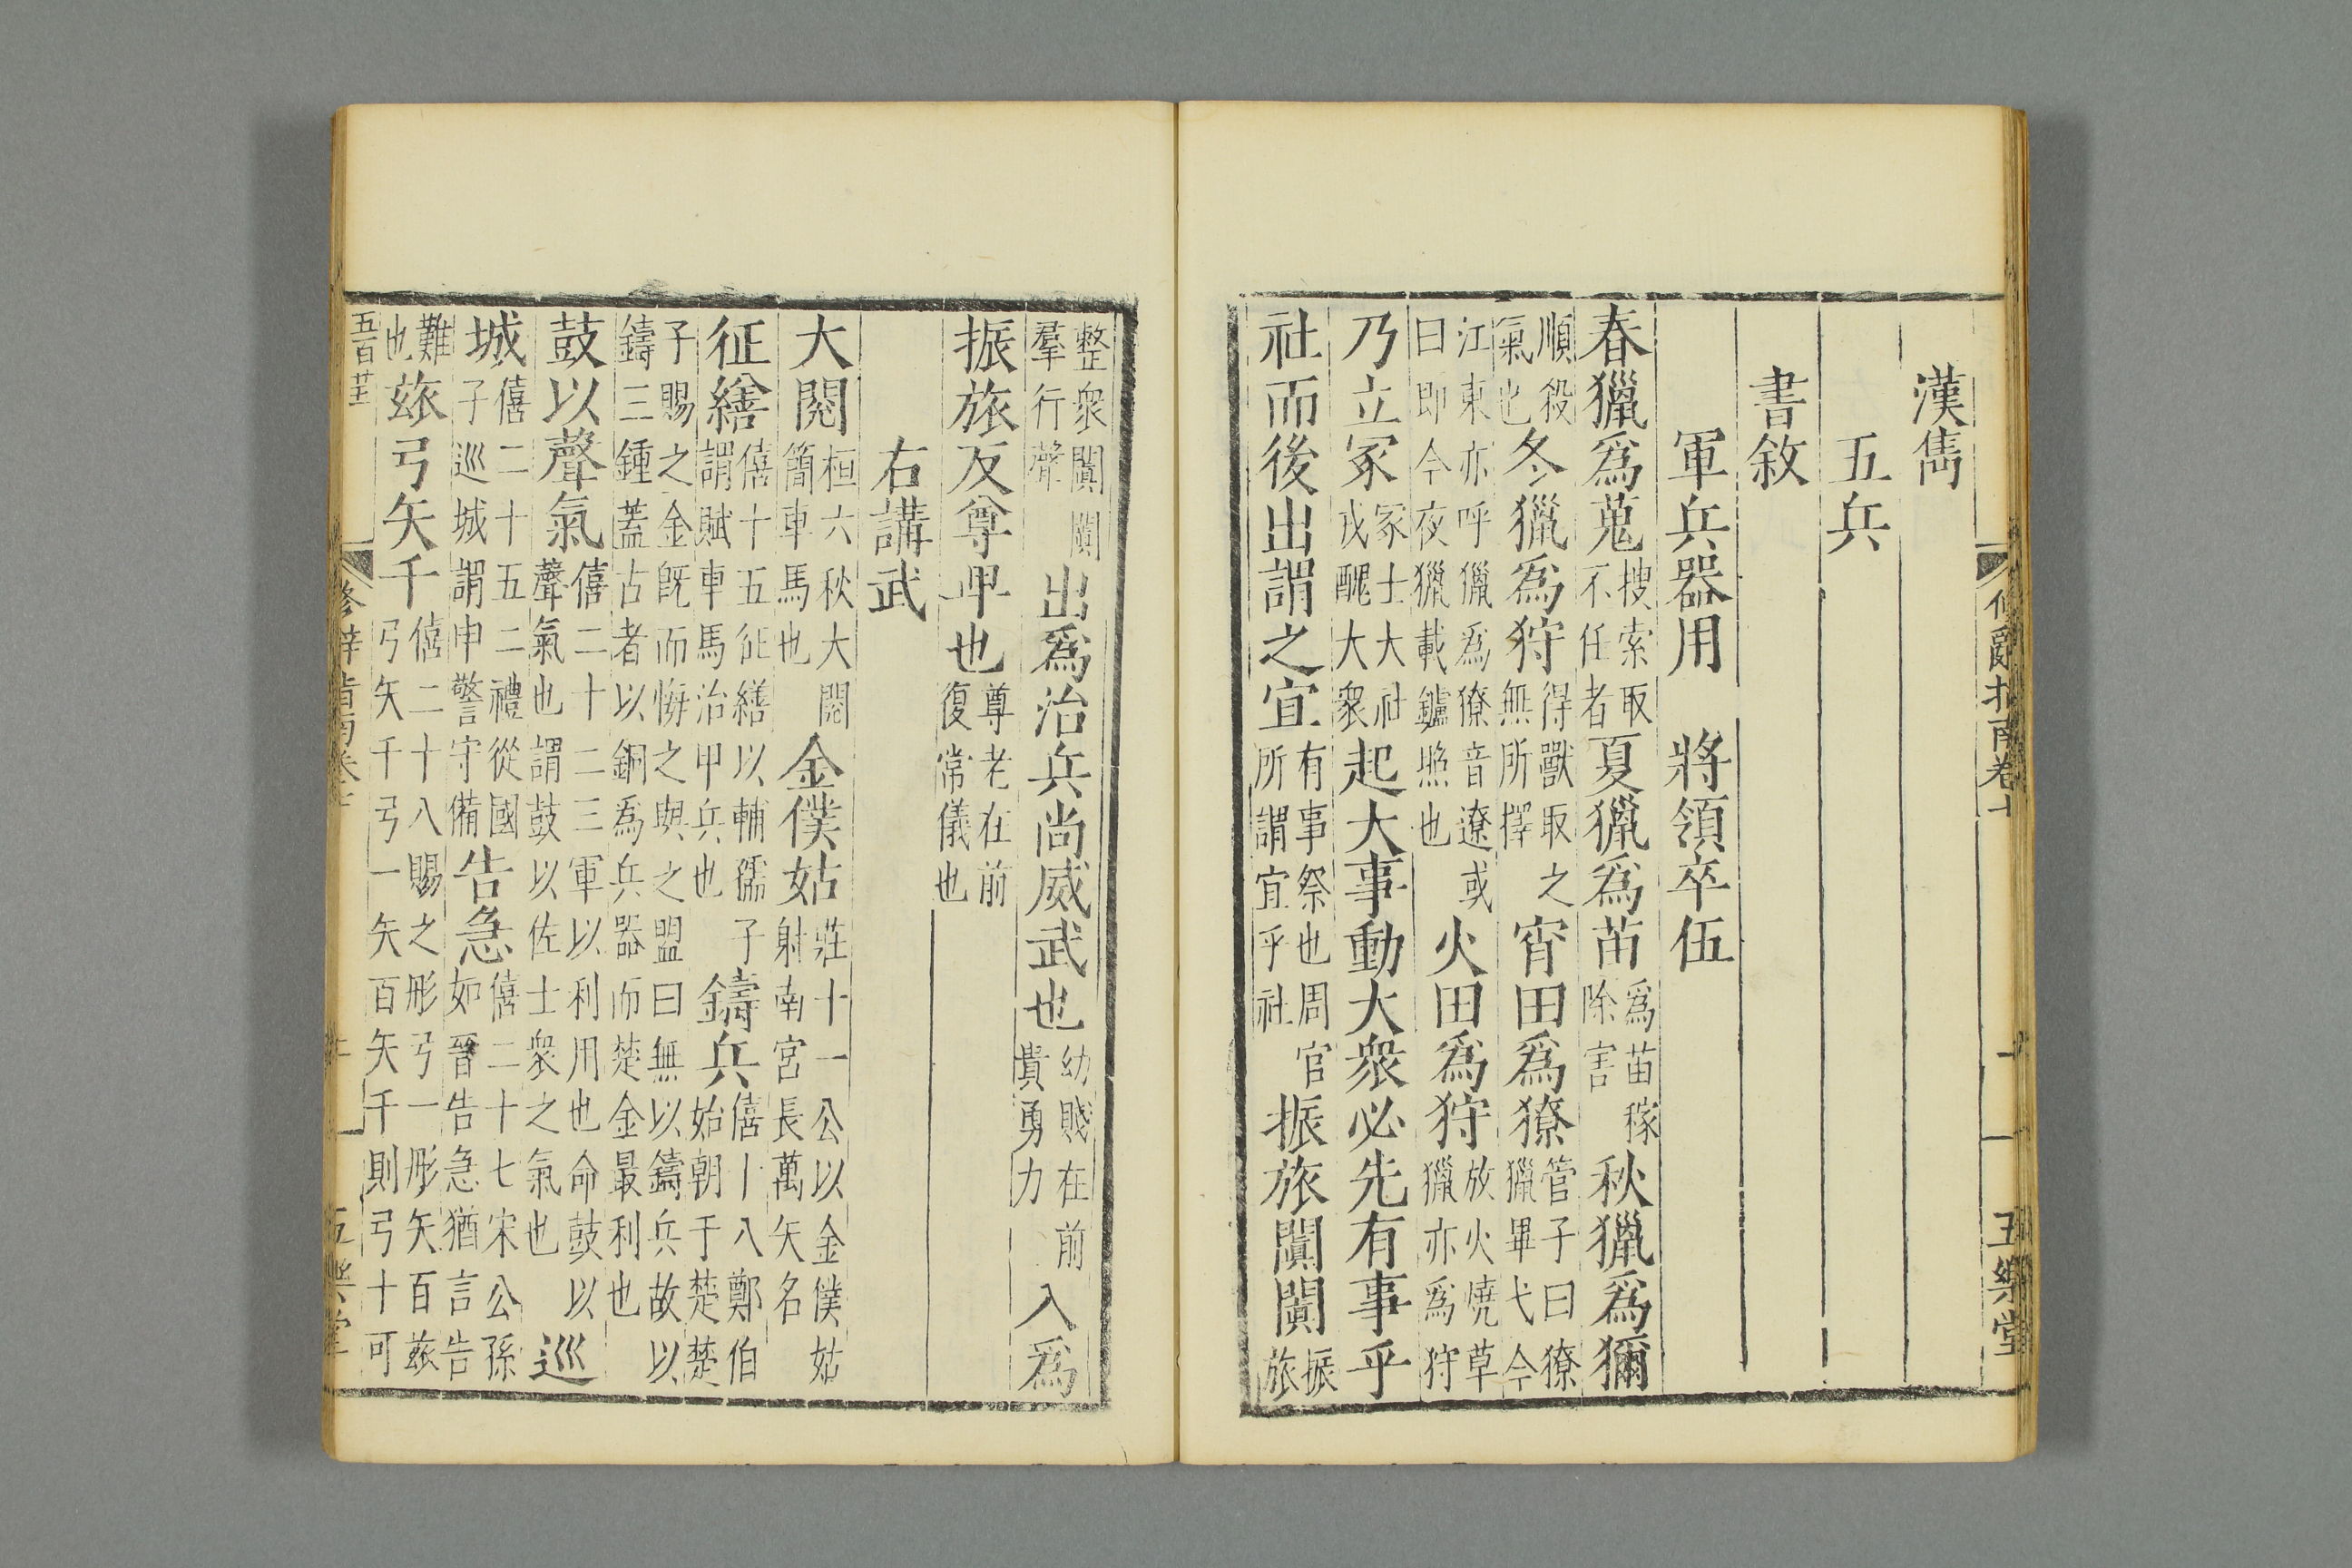 漢雋
五兵
書敘
軍兵器用 將領卒伍
春獵爲蒐搜索取不任者夏獵爲苗爲苗稼除害秋獵爲獮
順殺氣也冬獵爲狩得獸取之無所擇宵田爲獠管子曰獠獵畢弋今
江東亦呼獵爲獠音遼或曰即今夜獵載鑪照也火田爲狩放火燒草獵亦爲狩
乃立冢冢士大社戎醜大衆起大事動大衆必先有事乎
社而後出謂之宜有事祭也周官所謂宜乎社振旅闐闐振旅
整衆闐闐羣行聲出爲治兵尚威武也幼賤在前貴勇力入爲
振旅反尊卑也尊老在前復常儀也
右講武
大閱桓六秋大閱簡車馬也金僕姑莊十一公以金僕姑射南宮長萬矢名
征繕僖十五征繕以輔孺子謂賦車馬治甲兵也鑄兵僖十八鄭伯始朝于楚楚
子賜之金既而悔之與之盟曰無以鑄兵故以鑄三鍾蓋古者以銅爲兵器而楚金最利也
鼓以聲氣僖二十二三軍以利用也命鼓以聲氣也謂鼓以佐士衆之氣也巡
城僖二十五二禮從國子巡城謂申警守備告急僖二十七宋公孫如晉告急猶言告
難也玈弓矢千僖二十八賜之彤弓一彤矢百玈弓矢千弓一矢百矢千則弓十可
修辭指南卷十
五樂堂